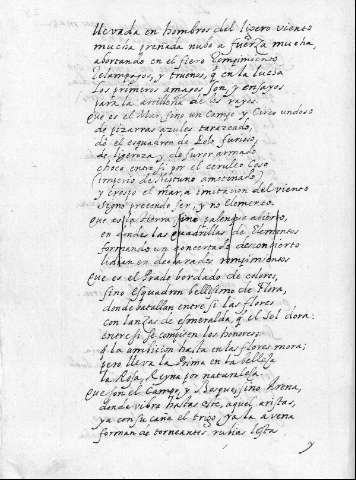 llevada en hombros del ligero viento
mucha preñada nube a fuerza mucha,
abortando en el fiero rompimiento
relampagos, y truenos, q en la lucha
los primeros amagos son, y ensayos
para la artilleria de los rayos.
Que es el Mar, sino un Campo y Circo undoso
de pizarras azules
do el esquadron de Eolo furioso
de ligereza, y de furor armado
choca entre si por el ceruleo Coso
(imperio de Neptuno amotinado)
y crespo el mar, a imitacion del viento
signo pretende ser, y no elemento.
Que es la tierra, sino palenque abierto,
en donde las quadrillas de elementos
formando un concertado desconcierto
lidian en declarados rompimientos
Que es el Prado bordado de colores,
sino Esquadron bellissimo de Flora,
donde batallan entre si las flores
con lanzas de esmeralda, q el sol dora:
entre si se compiten los honores;
q la ambicion hasta en las flores mora;
pero lleva la Prima en la belleza
la Rosa, Reyna por naturaleza.
Que son el Campo, y Bosque, sino Arena,
donde vibra hastas este, aquel aristas,
ya con su caña el trigo ya la avena
forman de torneantes rubias listas
y